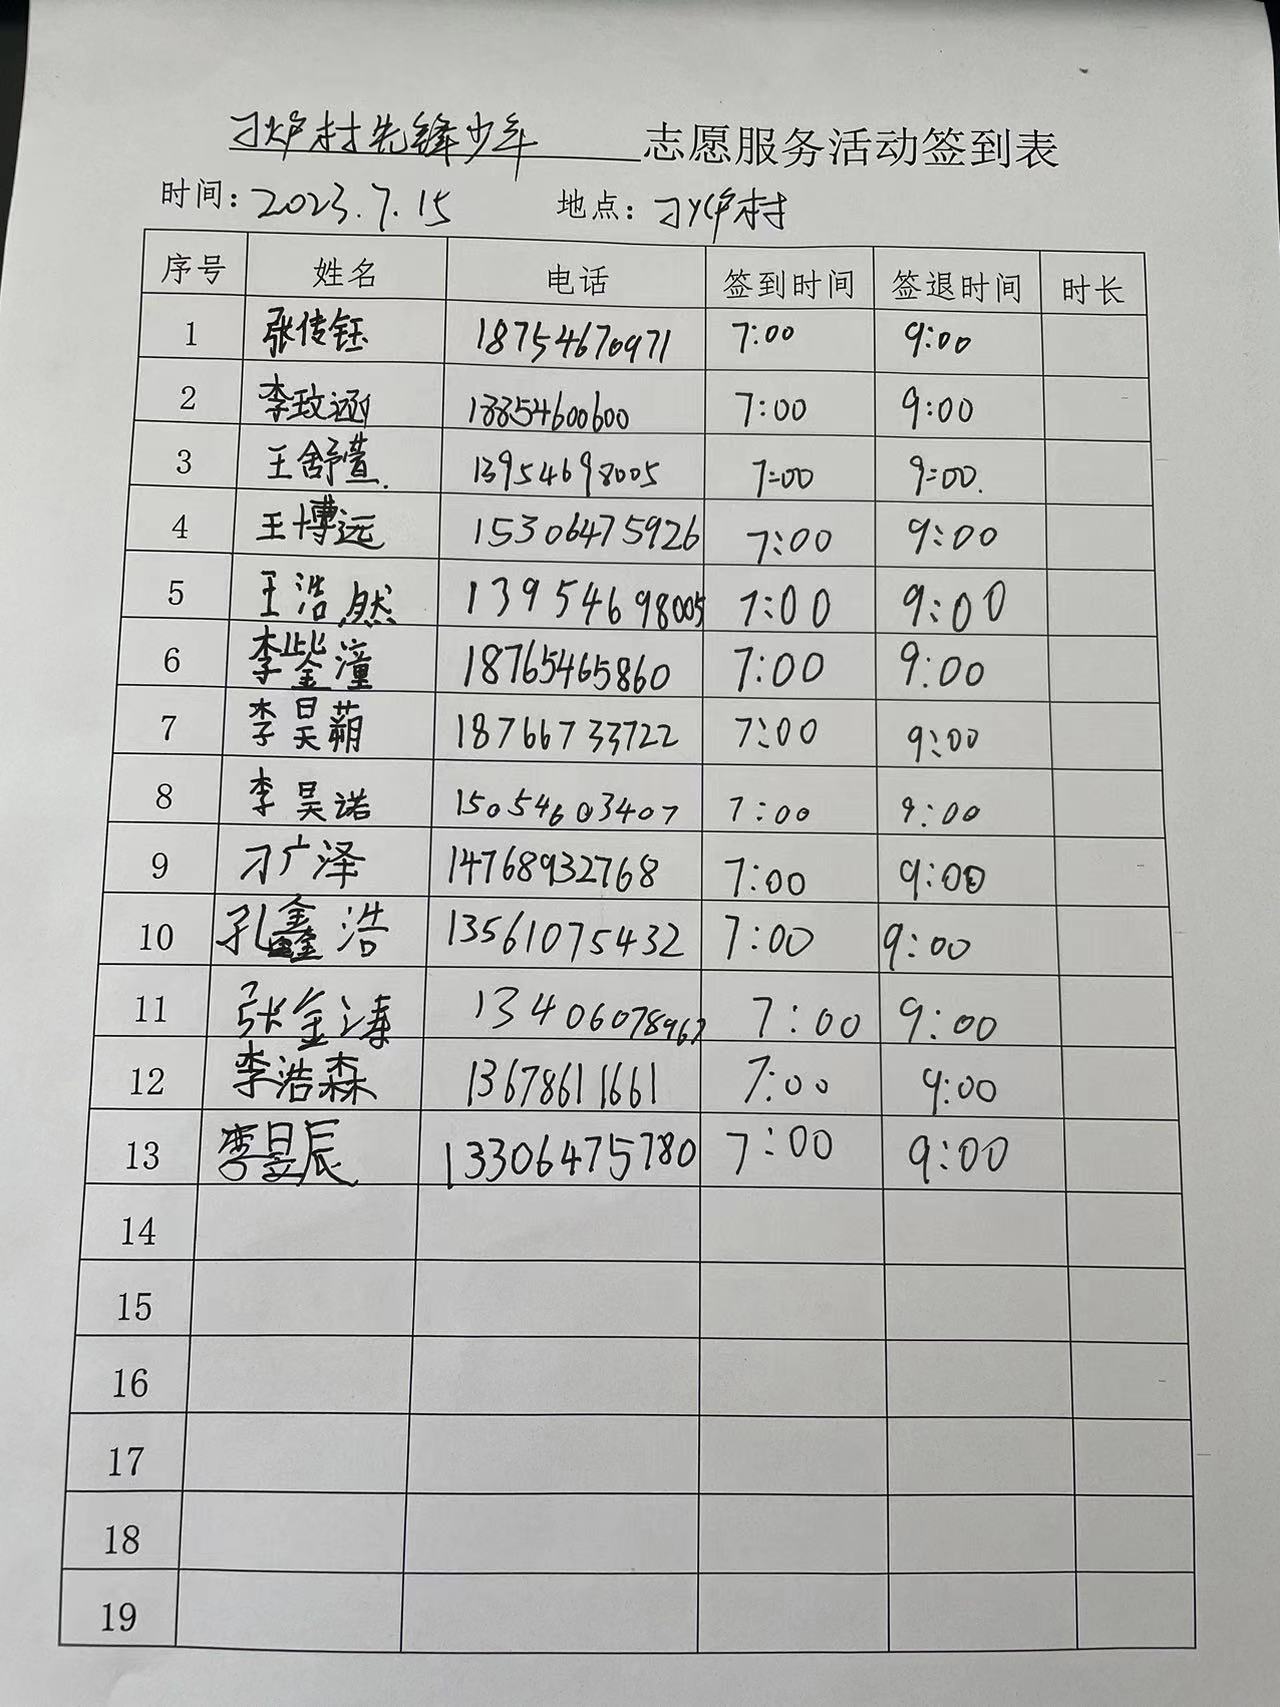 刁炉村先锋少年 志愿服务活动签到表
时间: 2023.7.15 地点: 刁炉村
序号 姓名 电话 签到时间 签退时间 时长
1 张传钰 18754670971 7:00 9:00
2 李玟涵 18854600600 7:00 9:00
3 王舒萱. 13954698005 7:00 9:00.
4 王博远 15306475926 7:00 9:00
5 王浩然 13954698005 7:00 9:00
6 李鈭潼 18765465860 7:00 9:00
7 李昊蒴 18766733722 7:00 9:00
8 李昊诺 15054603407 7:00 9:00
9 刁广泽 14768932768 7:00 9:00
10 孔鑫浩 13561075432 7:00 9:00
11 张金涛 13406078967 7:00 9:00
12 李浩森 13678611661 7:00 9:00
13 李昱辰 13306475780 7:00 9:00
14
15
16
17
18
19